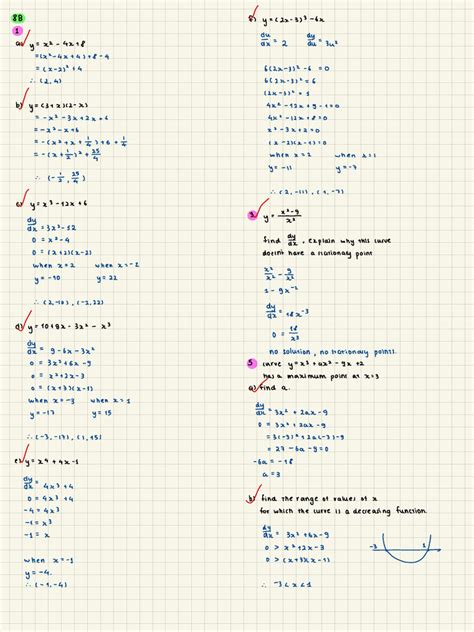 8B
1
a) y = x² - 4x + 8
= (x² - 4x + 4) + 8 - 4
= (x - 2)² + 4
∴ (2, 4)
b) y = (3 + x)(2 - x)
= -x² - 3x + 2x + 6
= -x² - x + 6
= -(x² + x + 1/4) + 6 + 1/4
= -(x + 1/2)² + 25/4
∴ (-1/2, 25/4)
c) y = x³ - 12x + 6
dy/dx = 3x² - 12
0 = x² - 4
0 = (x+2)(x-2)
when x = 2 when x = -2
y = -10 y = 22
∴ (2, -10), (-2, 22)
d) y = 10 + 9x - 3x² - x³
dy/dx = 9 - 6x - 3x²
0 = 3x² + 6x - 9
0 = x² + 2x - 3
0 = (x+3)(x-1)
when x = -3 when x = 1
y = -17 y = 15
∴ (-3, -17), (1, 15)
e) y = x⁴ + 4x - 1
dy/dx = 4x³ + 4
0 = 4x³ + 4
-4 = 4x³
-1 = x³
-1 = x
when x = -1
y = -4
∴ (-1, -4)
f) y = (2x - 3)³ - 6x
du/dx = 2 dy/du = 3u²
6(2x-3)² - 6 = 0
(2x-3)² = 1
4x² - 12x + 9 - 1 = 0
4x² - 12x + 8 = 0
x² - 3x + 2 = 0
(x-2)(x-1) = 0
when x = 2 when x = 1
y = -11 y = -7
∴ (2, -11), (1, -7)
y = x² - 9 / x²
find dy/dx, explain why this curve
doesn't have a stationary point
x²/x² - 9/x²
1 - 9x⁻²
dy/dx = 18x⁻³
0 = 18/x³
no solution, no stationary points.
5 curve y = x³ + ax² - 9x + 2
has a maximum point at x = -3
a) find a.
dy/dx = 3x² + 2ax - 9
0 = 3x² + 2ax - 9
= 3(-3)² + 2a(-3) - 9
= 27 - 6a - 9 = 0
-6a = -18
a = 3
b) find the range of values of x
for which the curve is a decreasing function
dy/dx = 3x² + 6x - 9
0 > x² + 2x - 3
0 > (x+3)(x-1)
-3 1
∴ -3 < x < 1